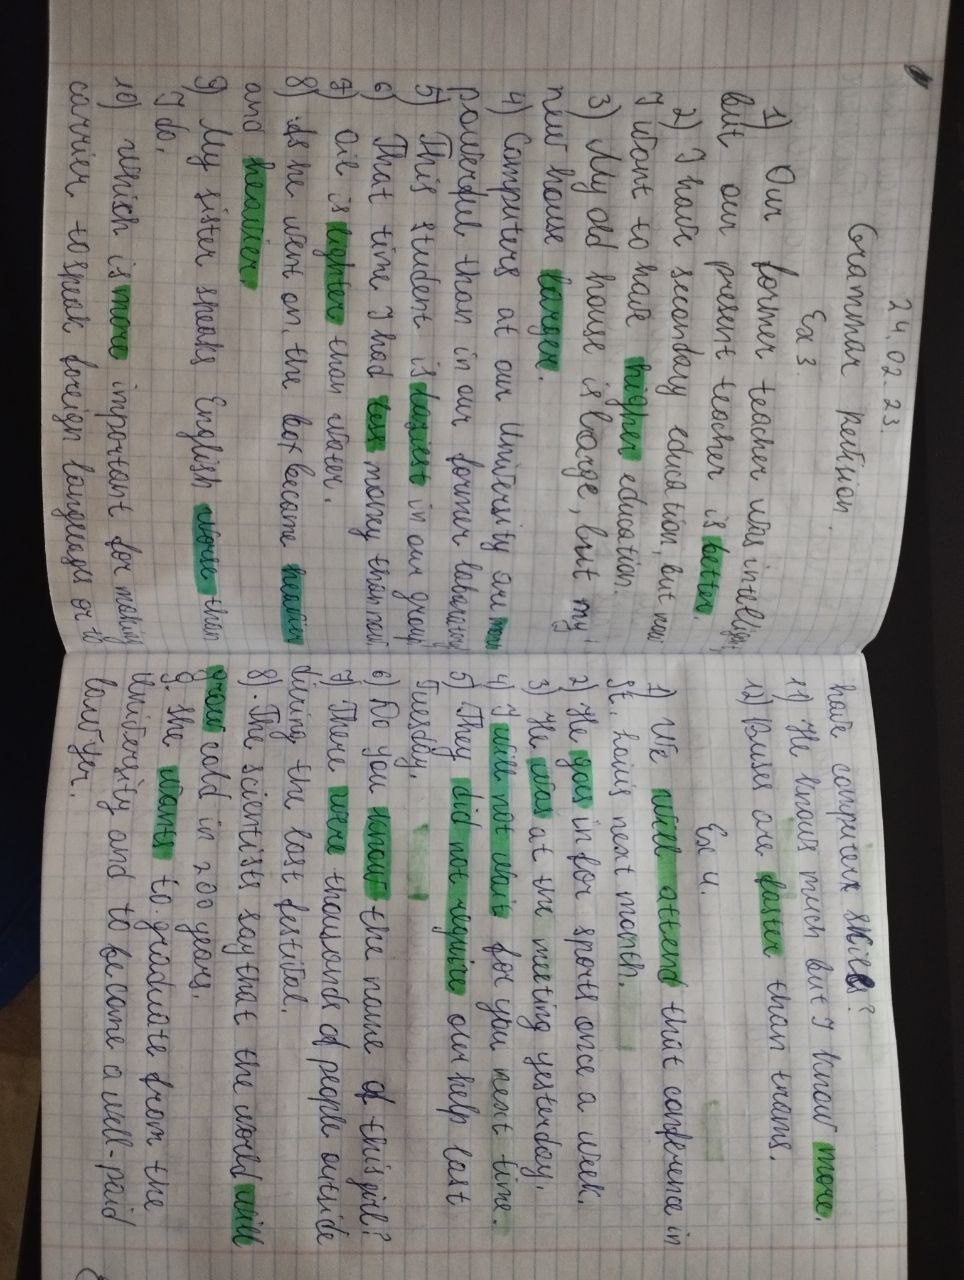 24.02.23.
Grammar revision.
Ex 3
1) Our former teacher was intelligent,
but our present teacher is better.
2) I have secondary education, but now
I want to have higher education.
3) My old house is large, but my
new house larger.
4) Computers at our University are more
powerful than in our former laboratory
5) This student is laziest in our group
6) That time I had less money than now
7) Oil is lighter than water.
8) As he went on, the box became heavier
and heavier
9) My sister speaks English worse than
I do.
10) which is more important for making
carrier to speak foreign languages or to
have computer skills?
11) He knows much but I know more.
12) Buses are faster than trams.
Ex 4.
1) We will attend that conference in
St. Louis next month.
2) He goes in for sports once a week.
3) He was at the meeting yesterday.
4) I will not wait for you next time.
5) They did not require our help last
Tuesday.
6) Do you know the name of this girl?
7) There were thousands of people outside
during the last festival.
8). The scientists say that the world will
grow cold in 200 years.
9. She wants to graduate from the
University and to become a well-paid
lawyer.